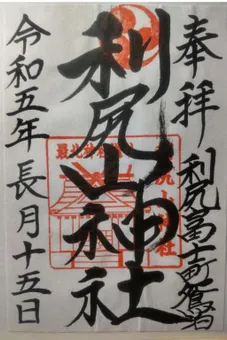 奉拝
利尻富士町鴛泊
利尻山神社
令和五年長月十五日